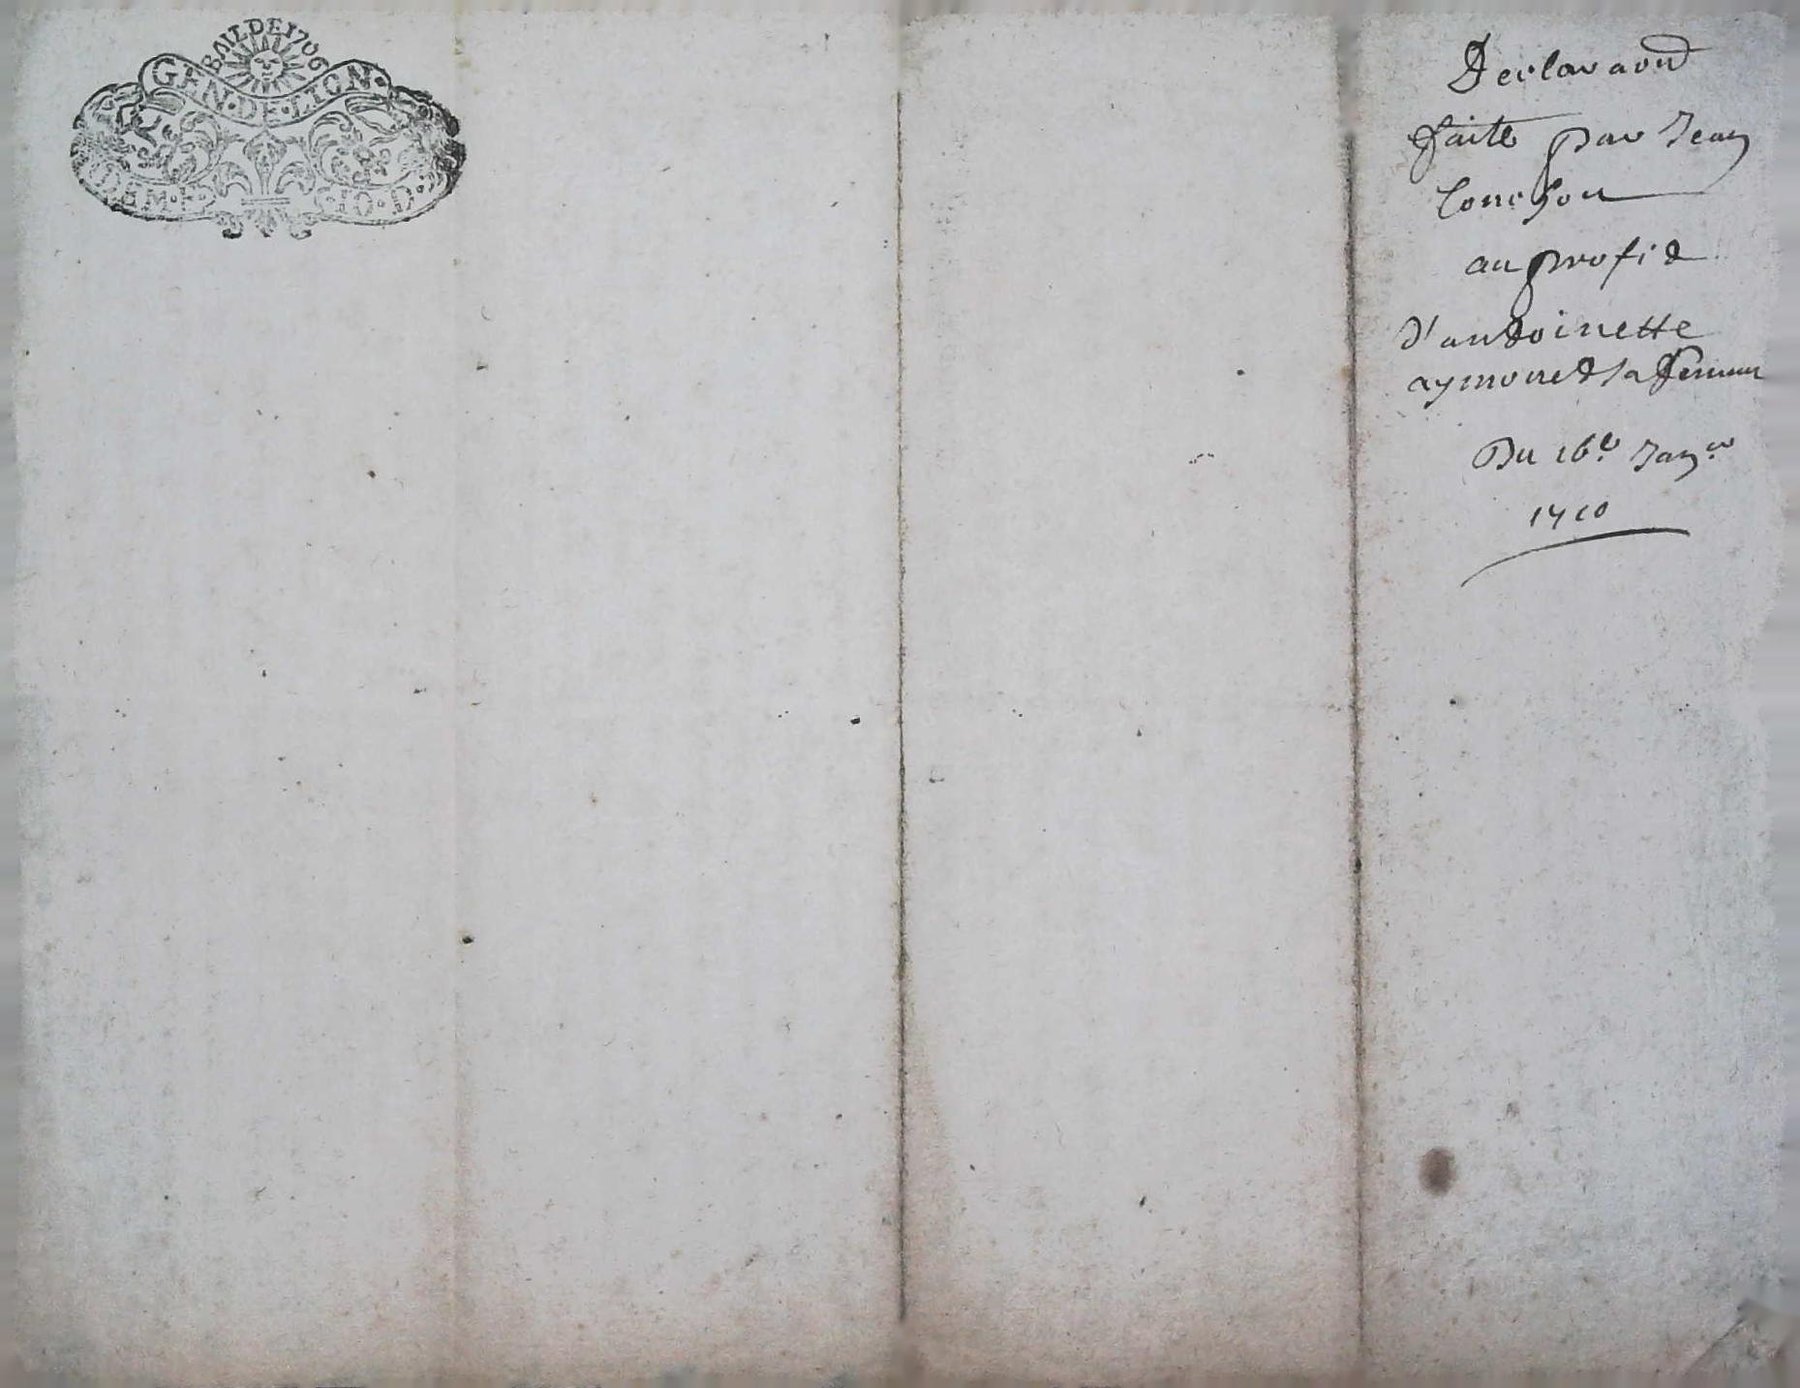 BAIL DE 1706
GEN · DE · LION ·
DEM · F ·
· 10 · D ·
Declaraond
faite par Jean
Conchon
au profid
d'andoinette
aymoned sa femme
Du 16e Janer
1710